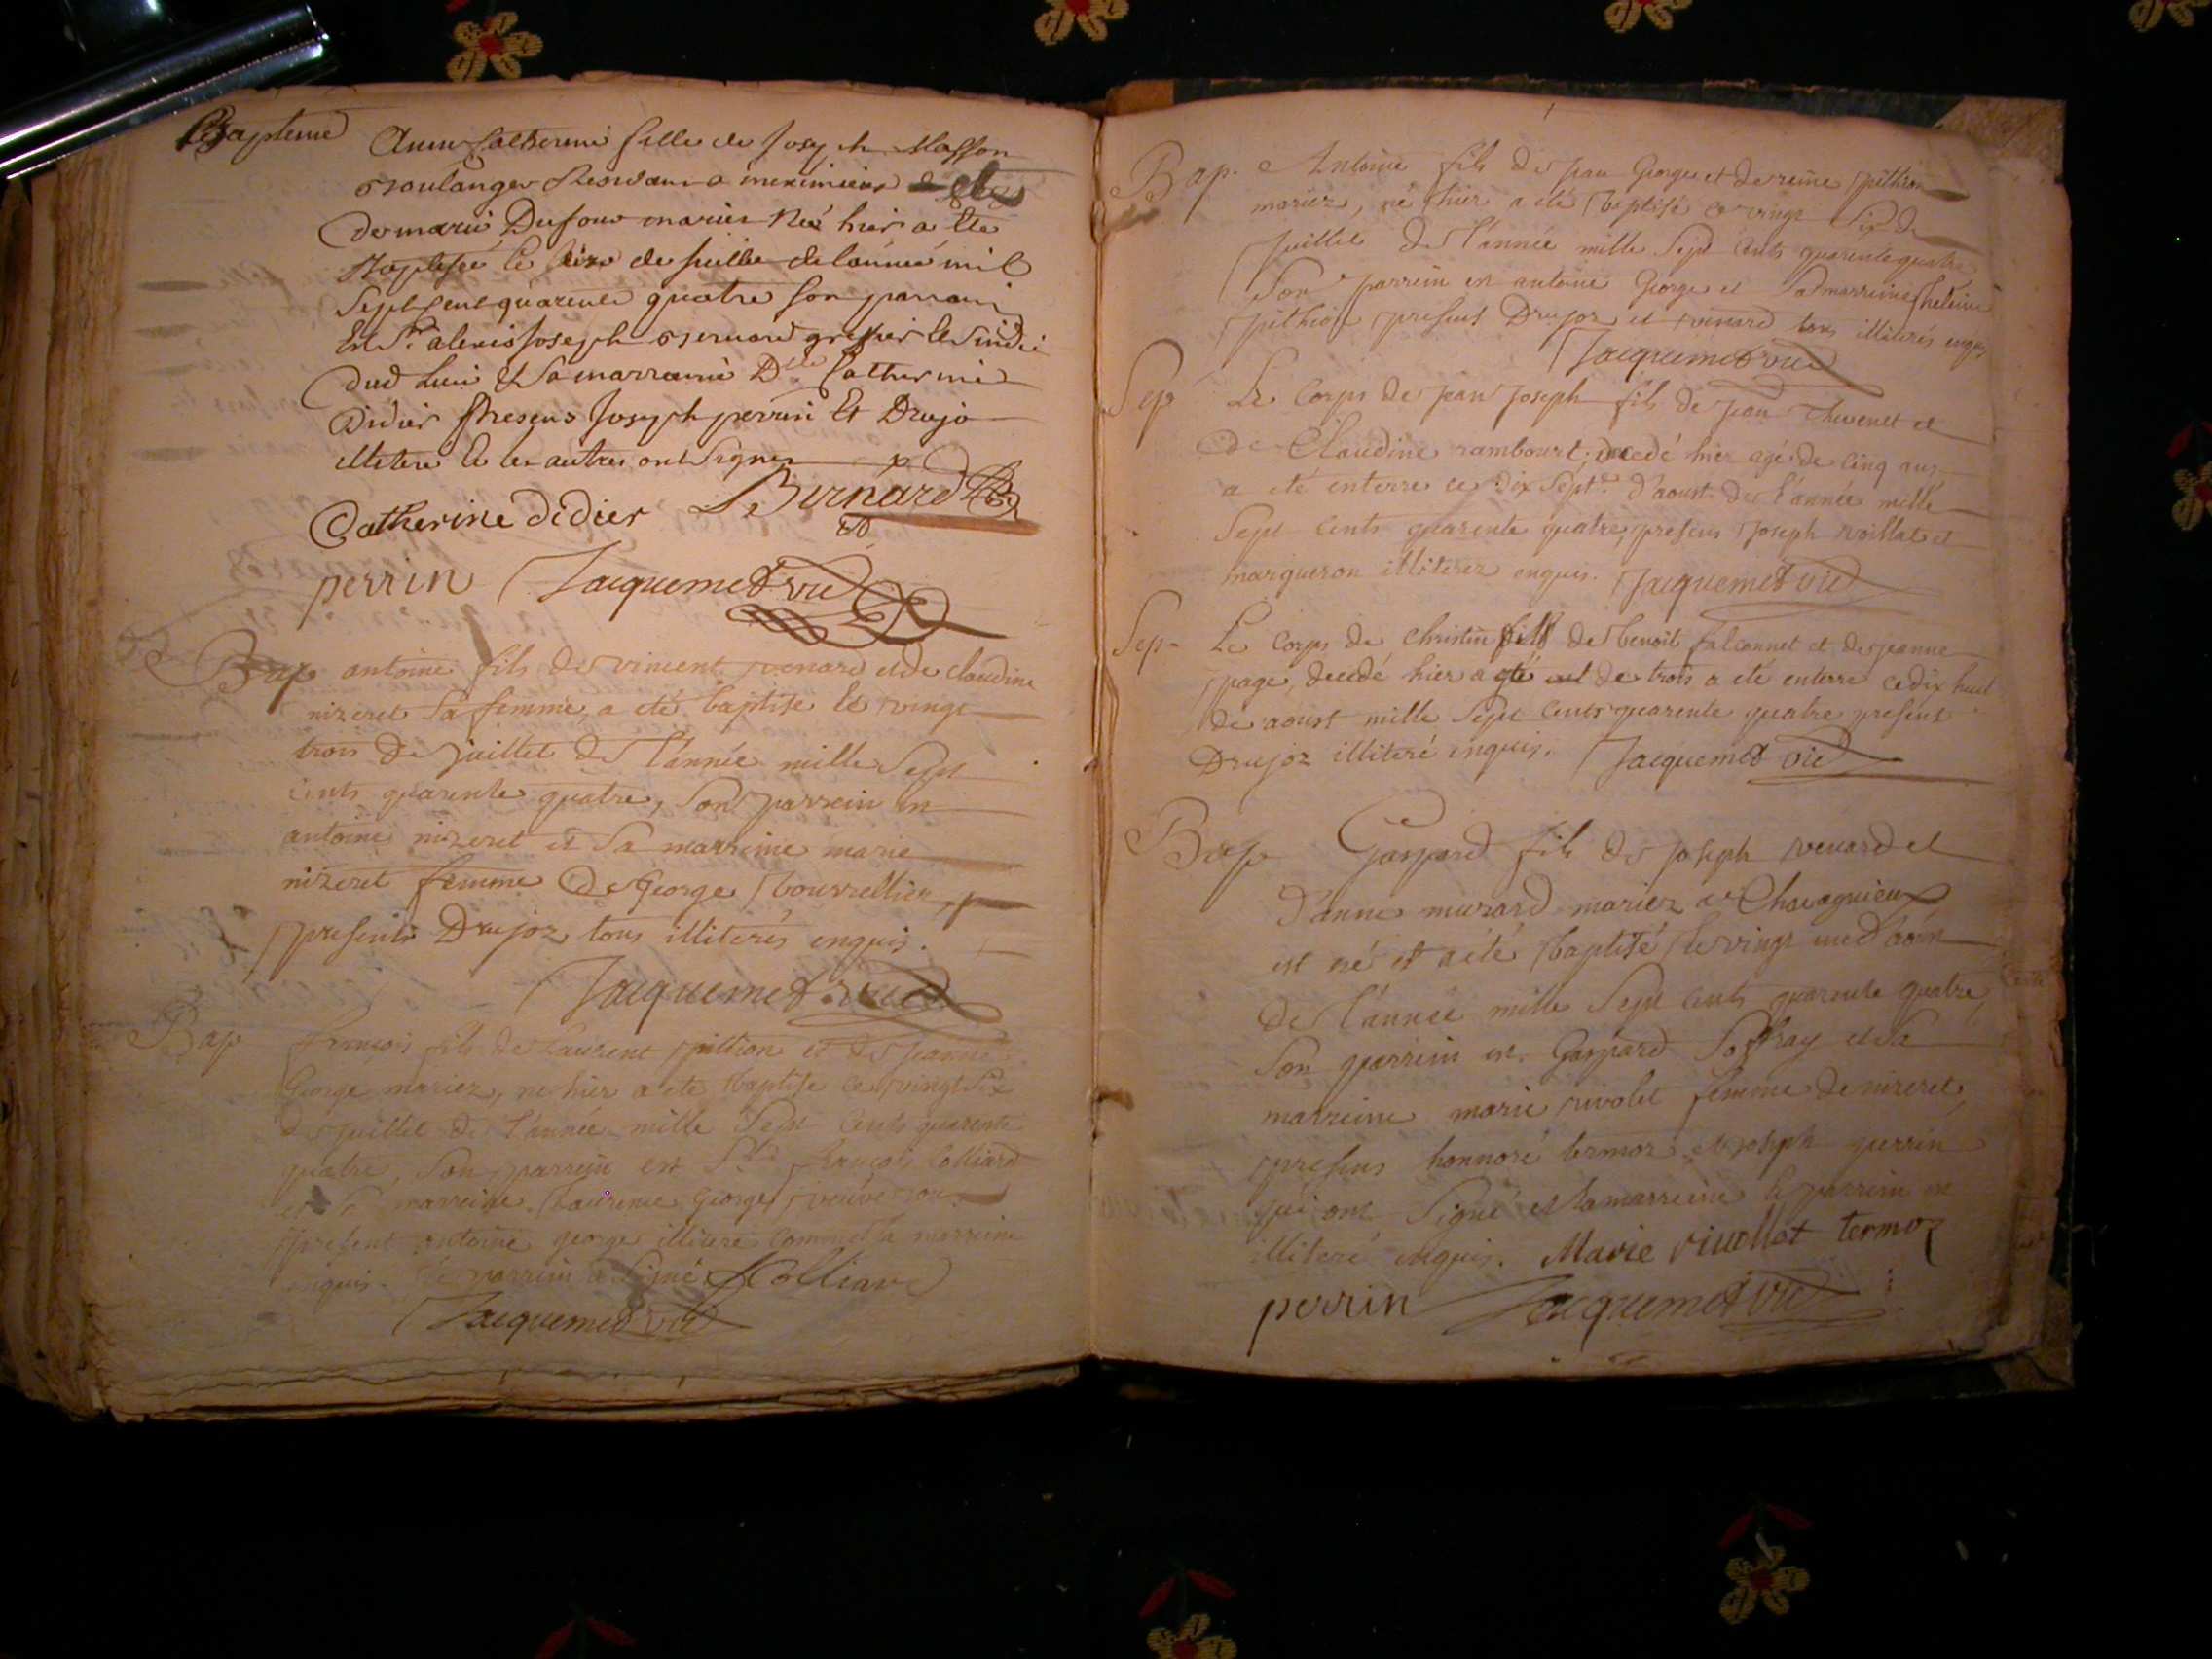 Bapteme Anne Catherine fille de Joseph Masson
Boulanger Residant a meximieux &
de marie Dufour mariés Née hier a Ete
Baptisée le seize de Juillet de lannée mil
Sept Cent quarente quatre son parrain
Est Sr. alexis Joseph Bernard greffier le Sindic
dud Lieu & Sa marraine Dlle Catherine
Didier presens Joseph perrin Et Drujo
illiteré le les autres ont Signes
Catherine didier Bernard
perrin Jacquemet vic
Bap antoine fils de vincent venard et de claudine
nizeret Sa femme, a eté baptisé le vingt
trois de juillet de l'année mille Sept
Cents quarente quatre, Son parrein est
antoine nizeret et Sa marreine marie
nizeret femme De George bourrellier
presents Drujoz tous illiterés enquis.
Jacquemet vic
Bap françois fils de Laurent pithion et de Jeanne
George mariez, né hier a eté baptisé ce vingt Six
de juillet de l'année mille Sept Cents quarente
quatre, Son parrein est Sr françois Colliard
et Sa marreine Laurence George veuve
present antoine george illiteré comme la marreine
enquis. Le parrein a Signé. Colliard
Jacquemet vic
Bap. Antoine fils de Jean George et de reine pithion
mariez, né hier a eté baptisé ce vingt Six de
Juillet de l'année mille Sept Cents quarente quatre
Son parrein est antoine George et Sa marreine heleine
pithion presens Drujoz et venard tous illiterés enquis
Jacquemet vic
Sep Le Corps de jean joseph fils de jean thevenet et
de Claudine rambourt, decedé hier agé de Cinq ans
a eté enterré ce dix Sept d'aoust de l'année mille
Sept Cents quarente quatre, presens Joseph voillat et
margueron illiterez enquis. Jacquemet vic
Sep. Le Corps de Christin fils de benoit falconnet et de jeanne
page, decedé hier agé de trois a eté enterré ce dix huit
de aoust mille Sept Cents quarente quatre present
Drujoz illiteré enquis. Jacquemet vic
Bap Gaspard fils de joseph venard et
D'anne murard mariez a Chavagnieux
est né et a eté baptisé le vingt
De l'année mille Sept Cents quarente quatre,
Son parrein est Gaspard Soffray et Sa
marreine marie rivolet femme de nizeret,
presens honnoré termoz et joseph perrin
qui ont Signé et la marreine le parrein est
illiteré enquis. Marie riuollet termoz
perrin Jacquemet vic